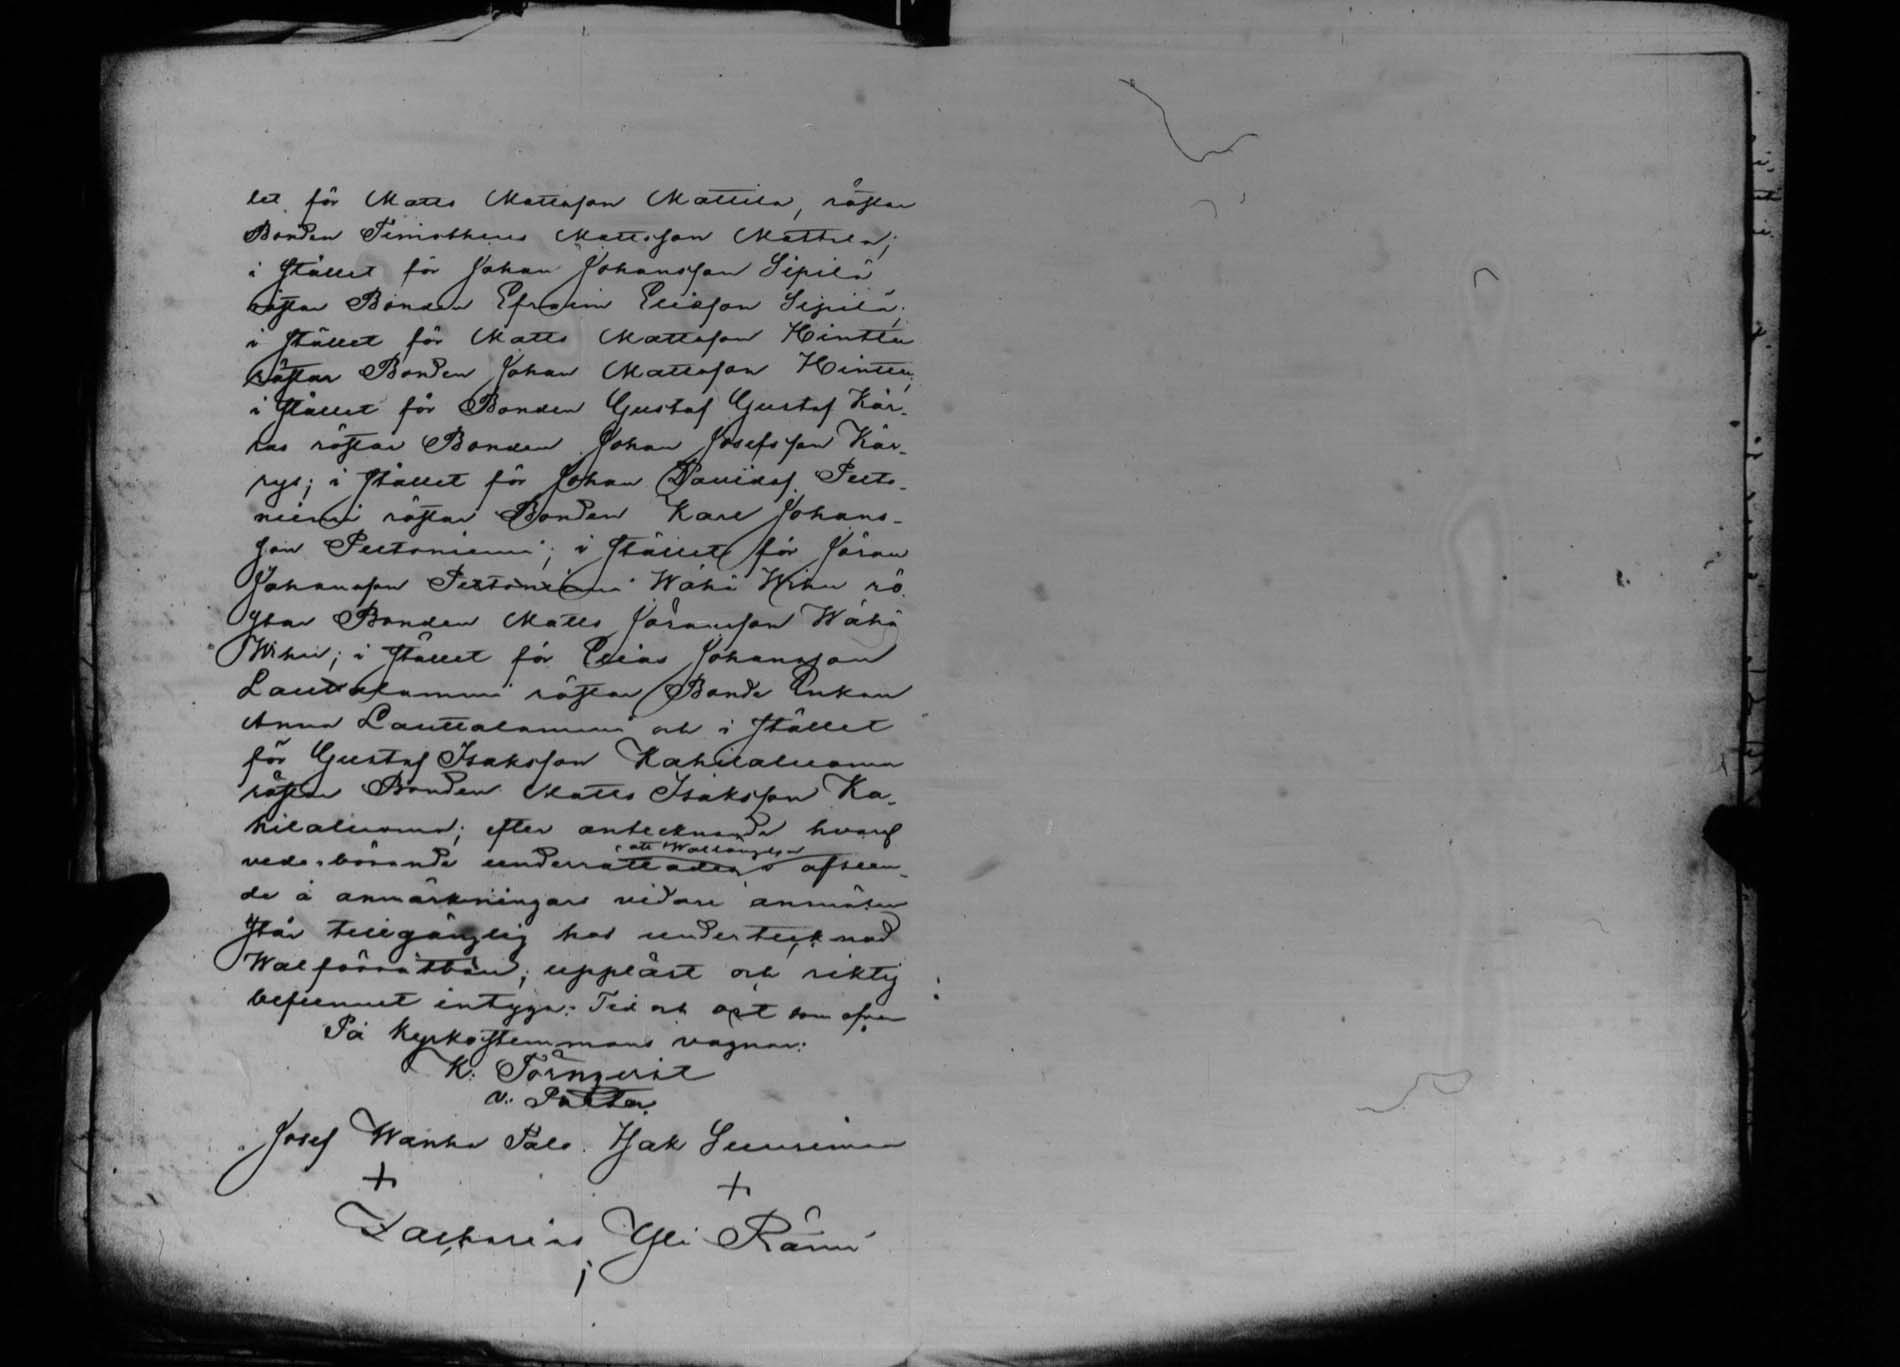 let för Matts Mattsson Mattila, röstar
Bonden Timotheus Mattsson Mattila;
i stället för Johan Johansson Sipilä
röstar Bonden Efraim Eliasson Sipilä;
i stället för Matts Mattsson Hintta
röstar Bonden Johan Mattsson Hintta;
i stället för Bonden Gustaf Gustafs Kär-
ras röstar Bonden Johan Josefsson Kär-
rys; i stället för Johan Davidss. Perto-
niemi röstar Bonden Karl Johans-
son Pertoniemi; i stället för Jöran
Johansson Pertoniemi Wähä Wihu rö
star Bonden Matts Jöransson Wähä
Wihu; i stället för Elias Johansson
Lauttalammi röstar Bonde Enkan
Anna Lauttalammi och i stället
för Gustaf Isaksson Kahilaluoma
röstar Bonden Matts Isaksson Ka-
hilaluoma; efter antecknande hvaraf
vederbörande underrättades afseen-
att Wallängden
de å anmärkningars vidare anmälan
står tillgänglig hos undertecknad
Walförrättare; uppläst och riktig
befunnet intyga: Tid och ort som ofvan
På Kyrkostemmans vägnar:
K. Törnqvist
v. Pastor
Josef Wanha Palo. Isak Suuriman
+ +
Zacharias Yli Rämi